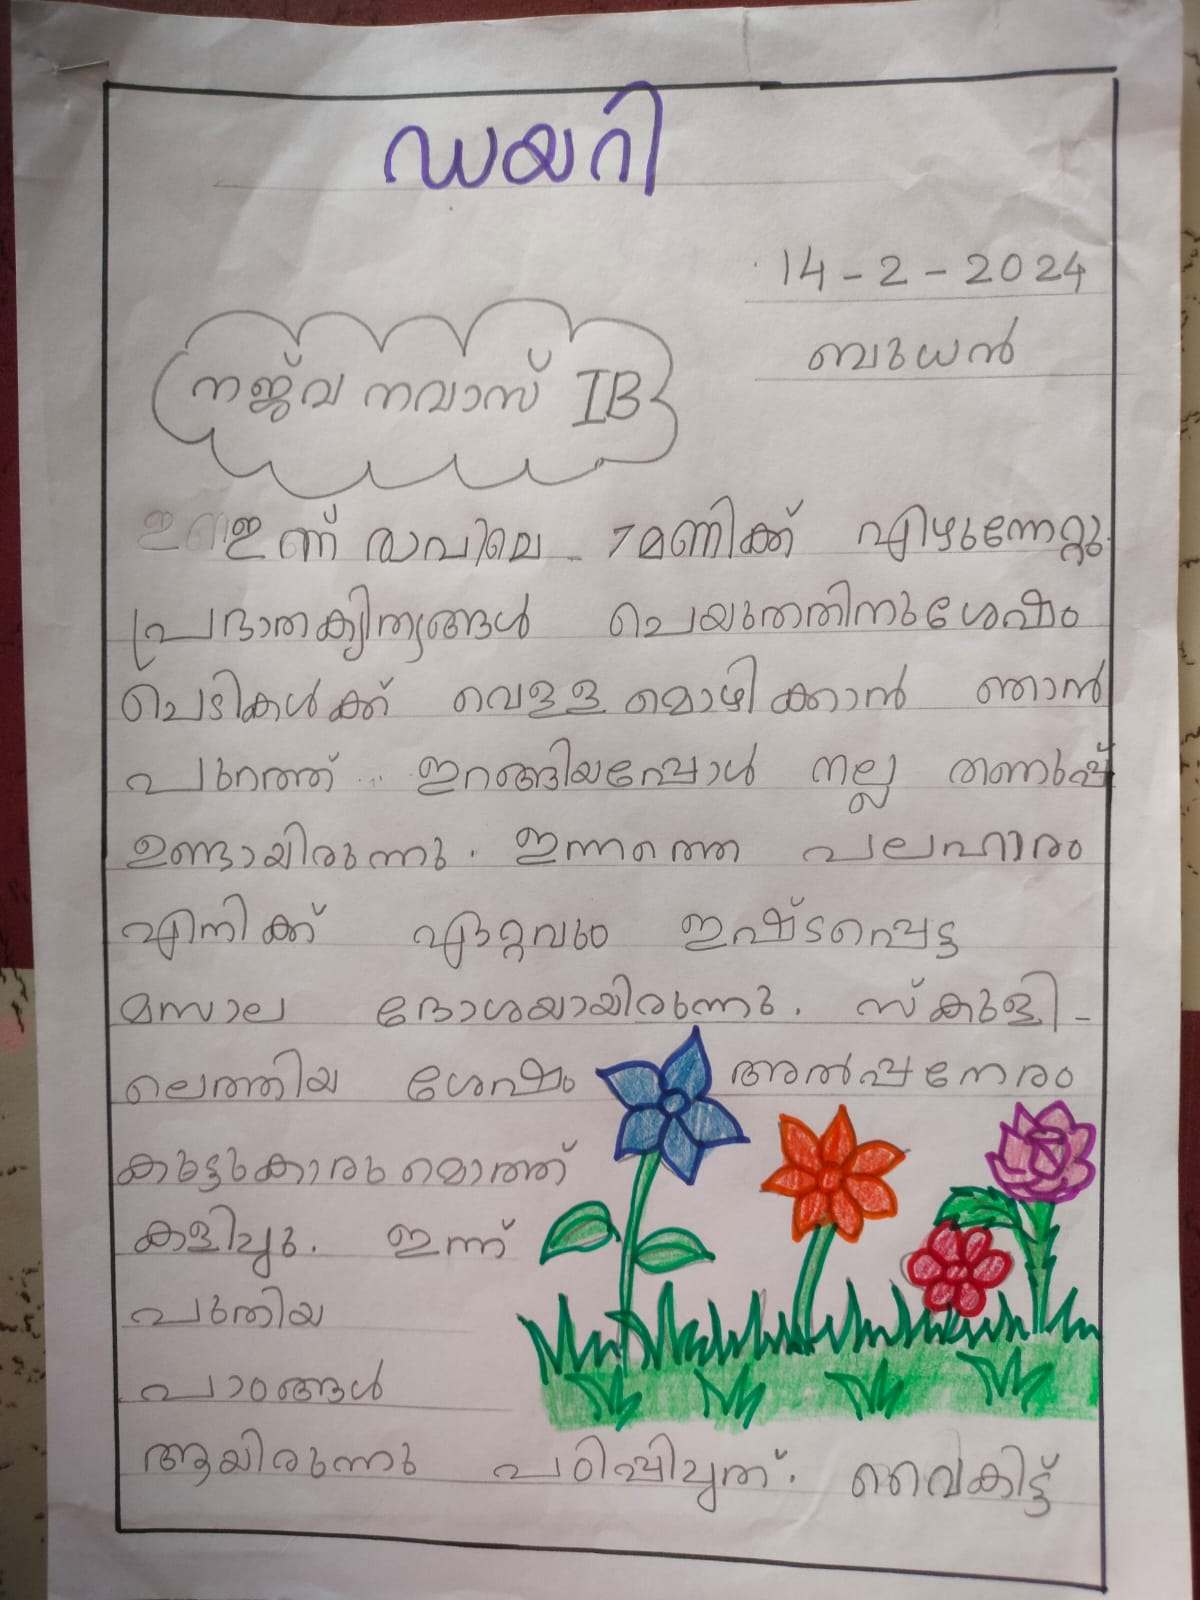 ഡയറി
14-2-2024
ബുധൻ
നജ്‌വ നവാസ് IB
ഇന്ന് രാവിലെ 7 മണിക്ക് എഴുന്നേറ്റു.
പ്രഭാതകൃത്യങ്ങൾ ചെയ്തതിനുശേഷം
ചെടികൾക്ക് വെള്ളമൊഴിക്കാൻ ഞാൻ
പുറത്ത് ഇറങ്ങിയപ്പോൾ നല്ല തണുപ്പ്
ഉണ്ടായിരുന്നു. ഇന്നത്തെ പലഹാരം
എനിക്ക് ഏറ്റവും ഇഷ്ടപ്പെട്ട
മസാല ദോശയായിരുന്നു. സ്കൂളി-
ലെത്തിയ ശേഷം അൽപ്പനേരം
കൂട്ടുകാരുമൊത്ത്
കളിച്ചു. ഇന്ന്
പുതിയ
പാഠങ്ങൾ
ആയിരുന്നു പഠിപ്പിച്ചത്. വൈകിട്ട്